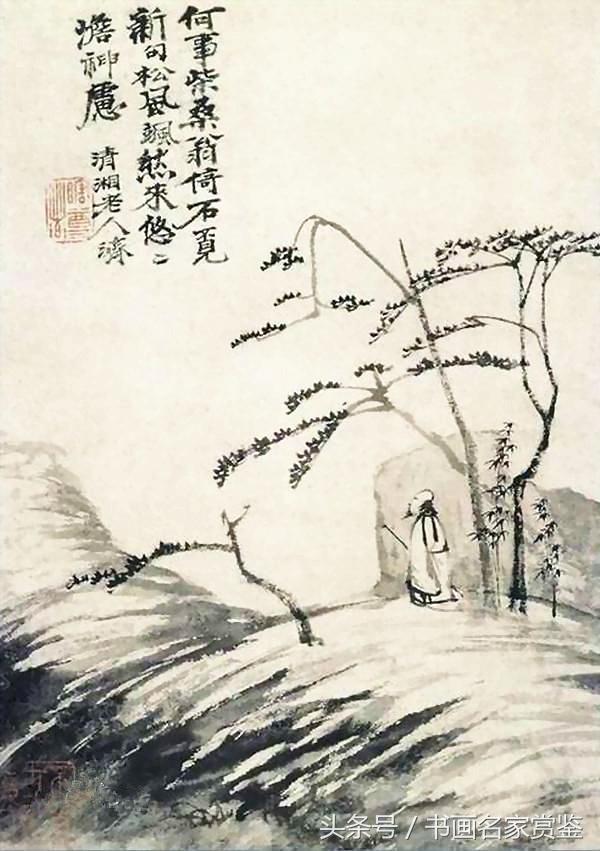 何事柴桑翁倚石覓
新句松風颯然来悠〻
澹神慮
清湘老人濟
头条号 / 书画名家赏鉴